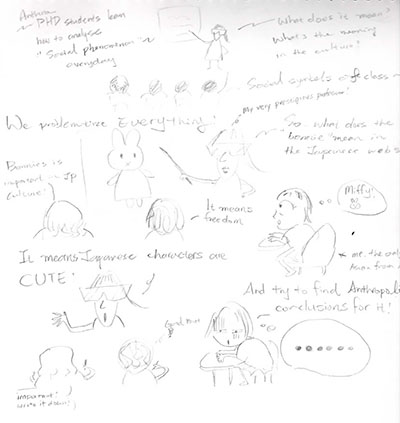 PHD students learn
how to analyse
"Social phenomenon"
everyday
What does it "mean"?
What's the meaning
in the culture?
Social symbols of class~
We problematize Everything!
My very prestigious professor
So what does the
bunnie "mean" in
the Japanese
Bunnies is
important in Jp
Culture!
It means
freedom
Miffy!
* me. the only
Asian from
It means Japanese characters are
CUTE!
And try to find
conclusions for it!
Good Point
important!
write it down!